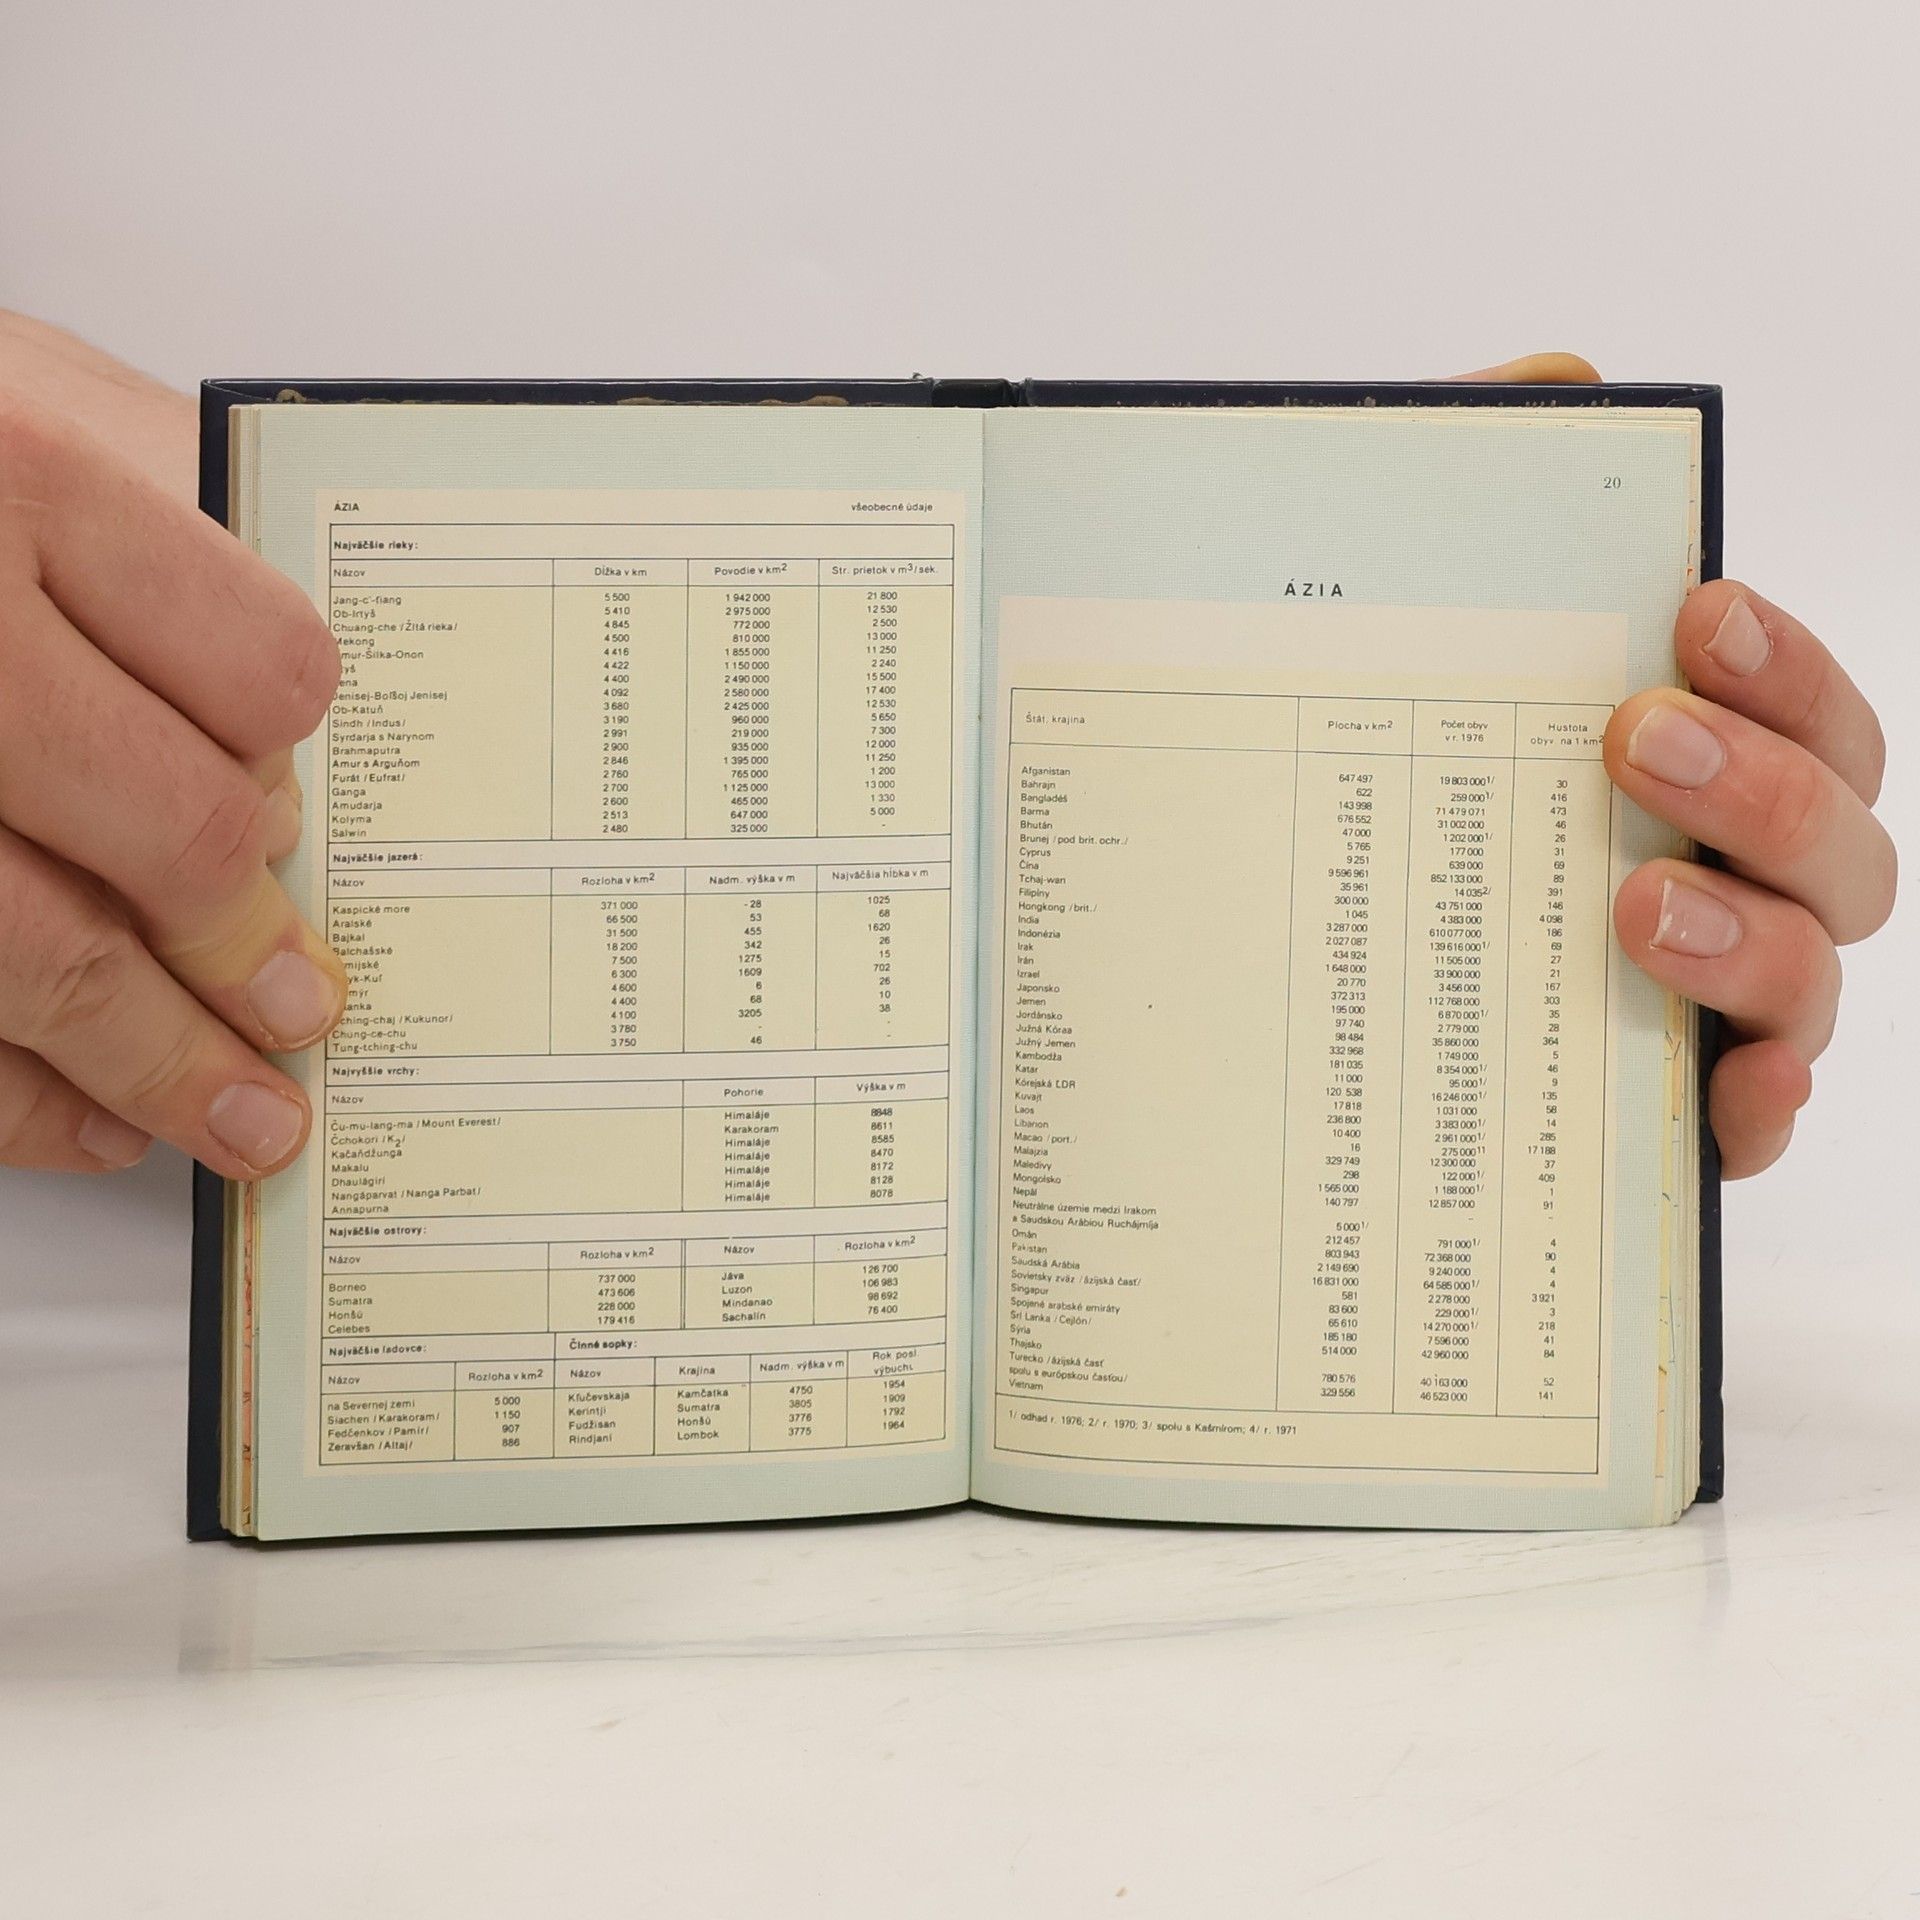 ÁZIA všeobecné údaje
Najväčšie rieky:
Názov Dĺžka v km Povodie v km2 Str. prietok v m3/sek.
Jang-c'-ťiang 5 500 1 942 000 21 800
Ob-Irtyš 5 410 2 975 000 12 530
Chuang-che /Žltá rieka/ 4 845 772 000 2 500
Mekong 4 500 810 000 13 000
mur-Šilka-Onon 4 416 1 855 000 11 250
yš 4 422 1 150 000 2 240
ena 4 400 2 490 000 15 500
Jenisej-Boľšoj Jenisej 4 092 2 580 000 17 400
Ob-Katuň 3 680 2 425 000 12 530
Sindh /Indus/ 3 190 960 000 5 650
Syrdarja s Narynom 2 991 219 000 7 300
Brahmaputra 2 900 935 000 12 000
Amur s Arguňom 2 846 1 395 000 11 250
Furát /Eufrat/ 2 760 765 000 1 200
Ganga 2 700 1 125 000 13 000
Amudarja 2 600 465 000 1 330
Kolyma 2 513 647 000 5 000
Salwin 2 480 325 000 -
Najväčšie jazerá:
Názov Rozloha v km2 Nadm. výška v m Najväčšia hĺbka v m
Kaspické more 371 000 - 28 1025
Aralské 66 500 53 68
Bajkal 31 500 455 1620
Balchašské 18 200 342 26
mijské 7 500 1275 15
yk-Kuľ 6 300 1609 702
mýr 4 600 6 26
anka 4 400 68 10
ching-chaj /Kukunor/ 4 100 3205 38
Chung-ce-chu 3 780 - -
Tung-tching-chu 3 750 46 -
Najvyššie vrchy:
Názov Pohorie Výška v m
Ču-mu-lang-ma /Mount Everest/ Himaláje 8848
Čchokori /K2/ Karakoram 8611
Kačaňdžunga Himaláje 8585
Makalu Himaláje 8470
Dhaulágiri Himaláje 8172
Nangáparvat /Nanga Parbat/ Himaláje 8128
Annapurna Himaláje 8078
Najväčšie ostrovy:
Názov Rozloha v km2 Názov Rozloha v km2
Borneo 737 000 Jáva 126 700
Sumatra 473 606 Luzon 106 983
Honšú 228 000 Mindanao 98 692
Celebes 179 416 Sachalin 76 400
Najväčšie ľadovce: Činné sopky:
Názov Rozloha v km2 Názov Krajina Nadm. výška v m Rok posl. výbuchu
na Severnej zemi 5 000 Kľučevskaja Kamčatka 4750 1954
Siachen /Karakoram/ 1 150 Kerintji Sumatra 3805 1909
Fedčenkov /Pamír/ 907 Fudžisan Honšú 3776 1792
Zeravšan /Altaj/ 886 Rindjani Lombok 3775 1964
20
ÁZIA
Štát, krajina Plocha v km2 Počet obyv. v r. 1976 Hustota obyv. na 1 km2
Afganistan 647 497 19 803 0001/ 30
Bahrajn 622 259 0001/ 416
Bangladéš 143 998 71 479 071 473
Barma 676 552 31 002 000 46
Bhután 47 000 1 202 0001/ 26
Brunej /pod brit. ochr./ 5 765 177 000 31
Cyprus 9 251 639 000 69
Čína 9 596 961 852 133 000 89
Tchaj-wan 35 961 14 0352/ 391
Filipíny 300 000 43 751 000 146
Hongkong /brit./ 1 045 4 383 000 4 098
India 3 287 000 610 077 000 186
Indonézia 2 027 087 139 616 0001/ 69
Irak 434 924 11 505 000 27
Irán 1 648 000 33 900 000 21
Izrael 20 770 3 456 000 167
Japonsko 372 313 112 768 000 303
Jemen 195 000 6 870 0001/ 35
Jordánsko 97 740 2 779 000 28
Južná Kórea 98 484 35 860 000 364
Južný Jemen 332 968 1 749 000 5
Kambodža 181 035 8 354 0001/ 46
Katar 11 000 95 0001/ 9
Kórejská ĽDR 120 538 16 246 0001/ 135
Kuvajt 17 818 1 031 000 58
Laos 236 800 3 383 0001/ 14
Libanon 10 400 2 961 0001/ 285
Macao /port./ 16 275 00011 17 188
Malajzia 329 749 12 300 000 37
Maledivy 298 122 0001/ 409
Mongolsko 1 565 000 1 188 0001/ 1
Nepál 140 797 12 857 000 91
Neutrálne územie medzi Irakom
a Saudskou Arábiou Ruchájmíja 5 0001/ - -
Omán 212 457 791 0001/ 4
Pakistan 803 943 72 368 000 90
Saudská Arábia 2 149 690 9 240 000 4
Sovietsky zväz /ázijská časť/ 16 831 000 64 585 0001/ 4
Singapur 581 2 278 000 3 921
Spojené arabské emiráty 83 600 229 0001/ 3
Srí Lanka /Cejlón/ 65 610 14 270 0001/ 218
Sýria 185 180 7 596 000 41
Thajsko 514 000 42 960 000 84
Turecko /ázijská časť
spolu s európskou časťou/ 780 576 40 163 000 52
Vietnam 329 556 46 523 000 141
1/ odhad r. 1976; 2/ r. 1970; 3/ spolu s Kašmírom; 4/ r. 1971